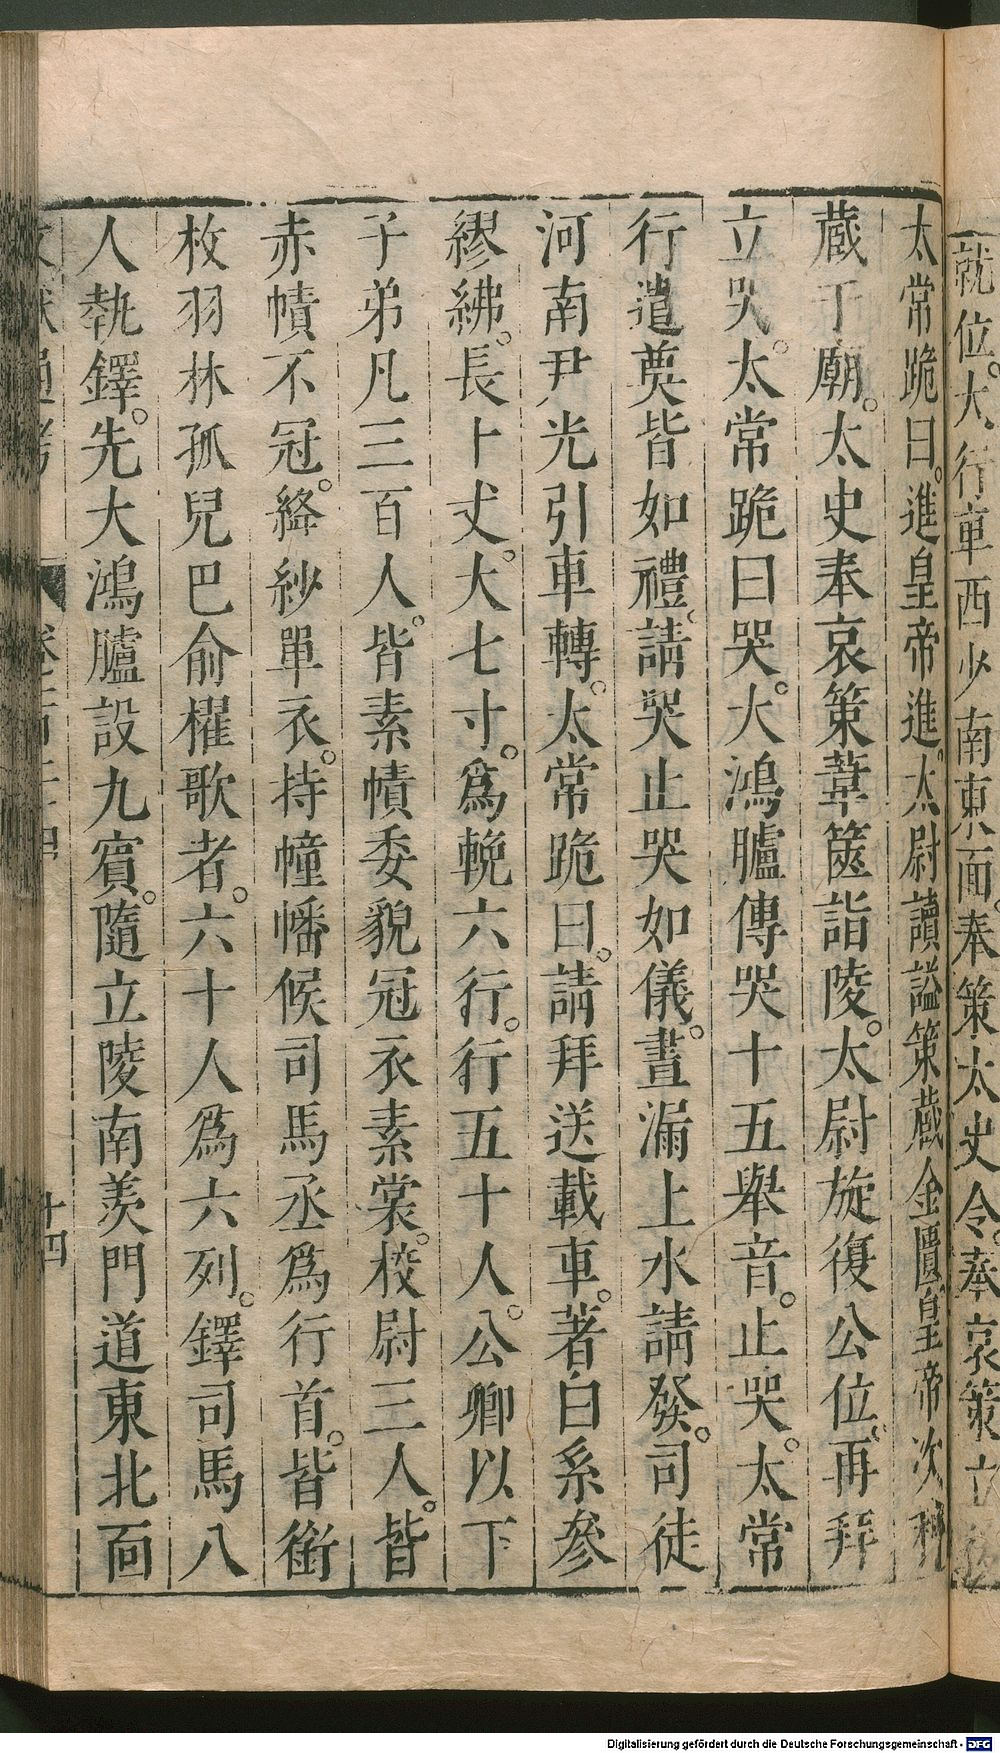 就位。大行車西少南東面。奉策。太史令奉哀策立
太常跪曰。進。皇帝進。太尉讀謚策。藏金匱。皇帝次科
藏于廟。太史奉哀策葦篋詣陵。太尉旋復公位。再拜
立哭。太常跪曰哭。大鴻臚傳哭十五舉音。止哭。太常
行遣奠皆如禮。請哭止哭如儀。晝漏上水請發。司徒
河南尹先引車轉。太常跪曰。請拜送載車。著白系參
繆紼。長卜丈。大七寸。爲輓六行。行五十人。公卿以下
子弟凡三百人。皆素幘委貌冠衣素裳。校尉三人。皆
赤幘不冠。絳紗單衣。持幢幡候司馬丞爲行首。皆銜
枚羽林孤兒巴俞櫂歌者。六十人爲六列。鐸司馬八
人執鐸。先大鴻臚設九賓。隨立陵南羨門道東北面
文獻通考
卷之百二十四
十四
Digitalisierung gefördert durch die Deutsche Forschungsgemeinschaft - DFG